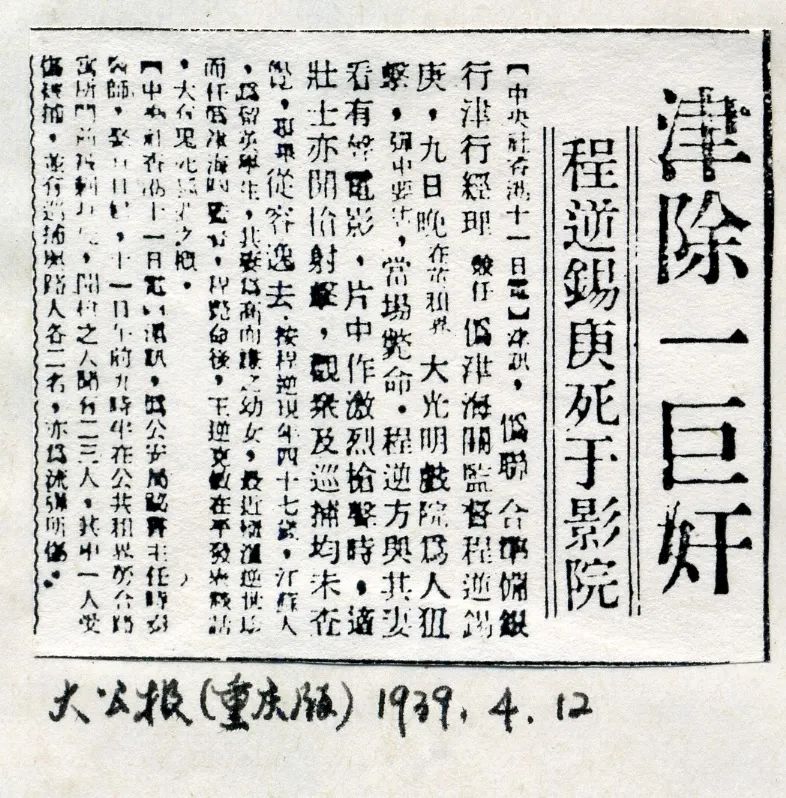 津除一巨奸
程逆錫庚死于影院
【中央社香港十一日電】津訊，僞聯合準備銀
行津行經理兼任僞津海關監督程逆錫
庚，九日晚在英租界大光明戲院爲人狙
擊，彈中要害，當場斃命．程逆方與其妻
看有聲電影，片中作激烈槍擊時，適
壯士亦開槍射擊，觀衆及巡捕均未查
覺，從容逸去．按程逆現年四十七歲，江蘇人
，爲留英學生，其妻爲之幼女，最近
而任僞津海關監督，程斃命後，王逆克敏在平發表談話
，大有兔死狐悲之概．
【中央社香港十一日電】滬訊，僞公安局主任
，十一日午前九時半在公共租界勞合路
寓所門前被刺，開槍之人聞有二三人，其中一人受
傷被捕，並有巡捕與路人各二名，亦爲流彈所傷．
大公报(重庆版) 1939. 4. 12